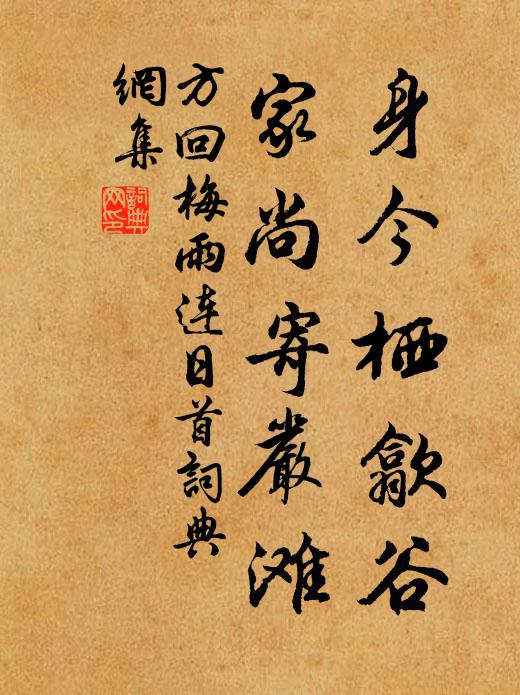 身今栖歙谷
家尚寄嚴滩
方回梅雨连日首詞典
網集
詞典網印